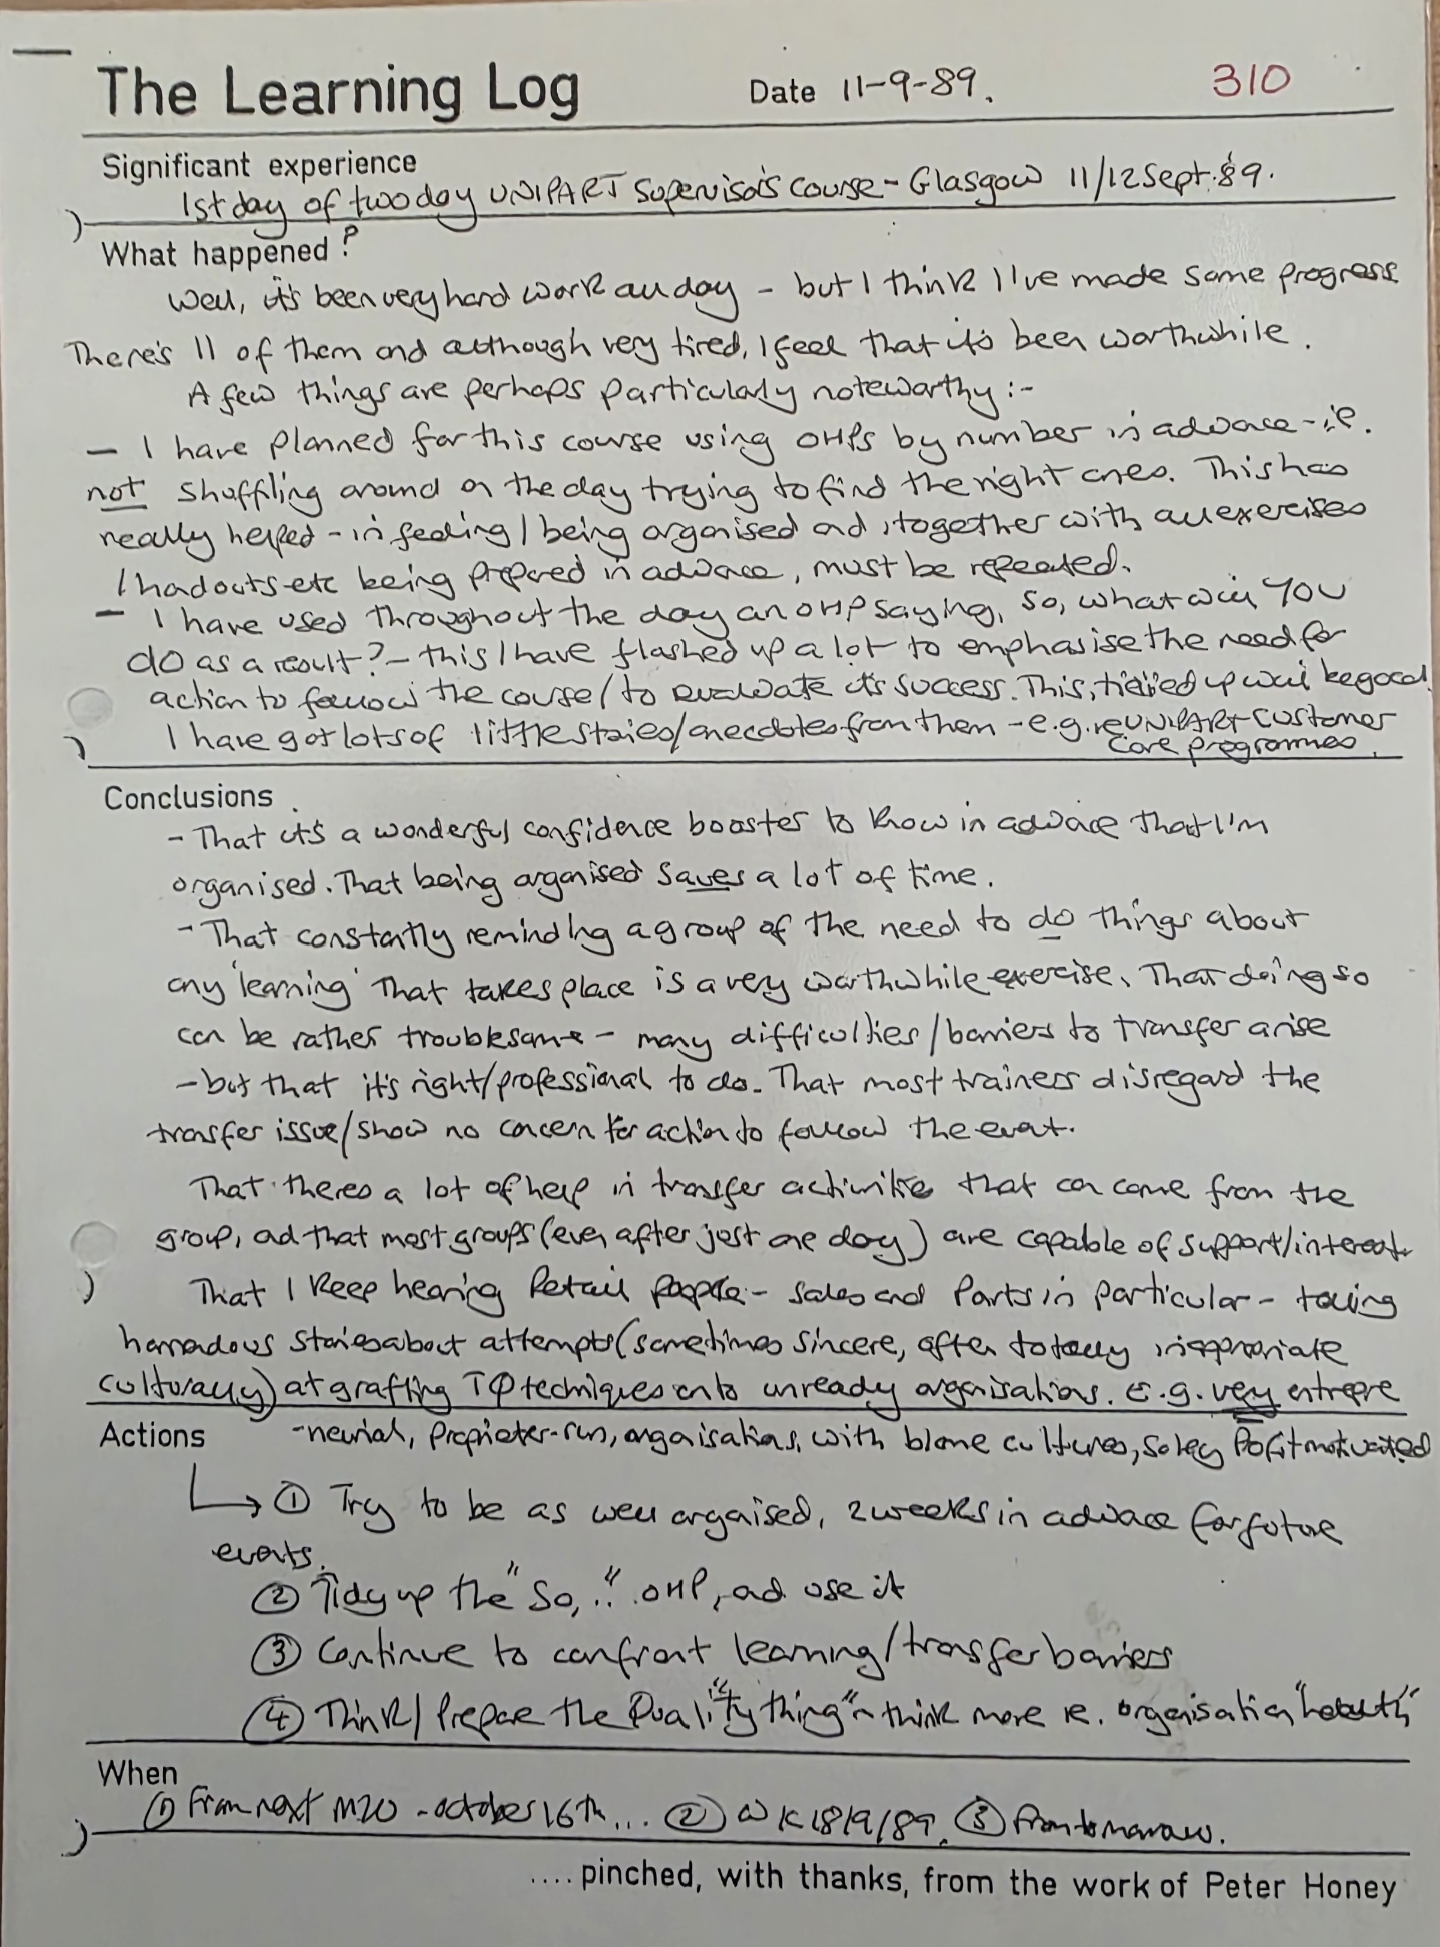 The Learning Log Date 11-9-89. 310
Significant experience
1st day of two day UNIPART Supervisor's Course - Glasgow 11/12 Sept. 89.
What happened?
Well, it's been very hard work all day - but I think I've made some progress
There's 11 of them and although very tired, I feel that it's been worthwhile.
A few things are perhaps particularly noteworthy :-
- I have planned for this course using OHPs by number in advance - i.e.
not shuffling around on the day trying to find the right ones. This has
really helped - in feeling / being organised and, together with all exercises
/ handouts etc being prepared in advance, must be repeated.
- I have used throughout the day an OHP saying, So, what will YOU
do as a result? - this I have flashed up a lot to emphasise the need for
action to follow the course / to evaluate it's success. This, tidied up will be good.
I have got lots of little stories/anecdotes from them - e.g. re UNIPART Customer
Care programmes.
Conclusions
- That it's a wonderful confidence booster to know in advance that I'm
organised. That being organised saves a lot of time.
- That constantly reminding a group of the need to do things about
any 'learning' that takes place is a very worthwhile exercise. That doing so
can be rather troublesome - many difficulties/barriers to transfer arise
- but that it's right/professional to do. That most trainers disregard the
transfer issue/show no concern for action to follow the event.
That theres a lot of help in transfer activities that can come from the
group, and that most groups (even after just one day) are capable of support/interest.
That I keep hearing Retail people - Sales and Parts in particular - talking
horrendous stories about attempts (sometimes sincere, often totally inappropriate
culturally) at grafting TQ techniques onto unready organisations. E.g. very entrepre
Actions -neurial, proprietor-run, organisations, with blame cultures, soley profit motivated
① Try to be as well organised, 2 weeks in advance for future
events.
② Tidy up the "So, .." OHP, and use it
③ Continue to confront learning/transfer barriers
④ Think/ Prepare the Quali"ty thing" - think more re. organisation "health"
When
① From next M20 - October 16th ... ② WK 18/9/89. ③ From tomorrow.
.... pinched, with thanks, from the work of Peter Honey